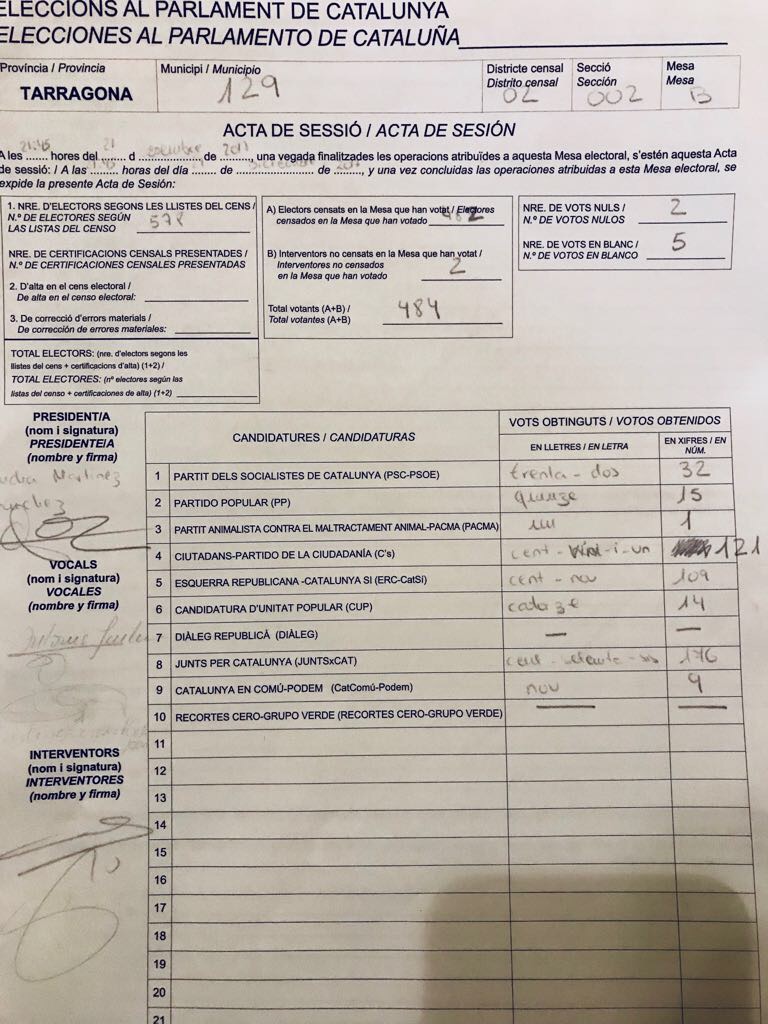 ELECCIONS AL PARLAMENT DE CATALUNYA
ELECCIONES AL PARLAMENTO DE CATALUÑA
Província / Provincia
TARRAGONA
Municipi / Municipio
129
Districte censal
Distrito censal
02
Secció
Sección
002
Mesa
Mesa
B
ACTA DE SESSIÓ / ACTA DE SESIÓN
A les 21:45 hores del 21 d ........ de ........, una vegada finalitzades les operacions atribuïdes a aquesta Mesa electoral, s'estén aquesta Acta
de sessió: / A las ........ horas del día ........ de ........ de ........, y una vez concluidas las operaciones atribuidas a esta Mesa electoral, se
expide la presente Acta de Sesión:
1. NRE. D'ELECTORS SEGONS LES LLISTES DEL CENS /
N.º DE ELECTORES SEGÚN
LAS LISTAS DEL CENSO
NRE. DE CERTIFICACIONS CENSALS PRESENTADES /
N.º DE CERTIFICACIONES CENSALES PRESENTADAS
2. D'alta en el cens electoral /
De alta en el censo electoral:
3. De correcció d'errors materials /
De corrección de errores materiales:
TOTAL ELECTORS: (nre. d'electors segons les
llistes del cens + certificacions d'alta) (1+2) /
TOTAL ELECTORES: (nº electores según las
listas del censo + certificaciones de alta) (1+2)
A) Electors censats en la Mesa que han votat / Electores
censados en la Mesa que han votado 482
B) Interventors no censats en la Mesa que han votat /
Interventores no censados
en la Mesa que han votado 2
Total votants (A+B) /
Total votantes (A+B) 484
NRE. DE VOTS NULS /
N.º DE VOTOS NULOS 2
NRE. DE VOTS EN BLANC /
N.º DE VOTOS EN BLANCO 5
PRESIDENT/A
(nom i signatura)
PRESIDENTE/A
(nombre y firma)
VOCALS
(nom i signatura)
VOCALES
(nombre y firma)
INTERVENTORS
(nom i signatura)
INTERVENTORES
(nombre y firma)
CANDIDATURES / CANDIDATURAS
VOTS OBTINGUTS / VOTOS OBTENIDOS
EN LLETRES / EN LETRA
EN XIFRES / EN NÚM.
1 PARTIT DELS SOCIALISTES DE CATALUNYA (PSC-PSOE) trenta-dos 32
2 PARTIDO POPULAR (PP) quinze 15
3 PARTIT ANIMALISTA CONTRA EL MALTRACTAMENT ANIMAL-PACMA (PACMA) un 1
4 CIUTADANS-PARTIDO DE LA CIUDADANÍA (C's) cent-vint-i-un 121
5 ESQUERRA REPUBLICANA -CATALUNYA SI (ERC-CatSí) cent-nou 109
6 CANDIDATURA D'UNITAT POPULAR (CUP) catorze 14
7 DIÀLEG REPUBLICÀ (DIÀLEG) — —
8 JUNTS PER CATALUNYA (JUNTSxCAT) cent-setanta-sis 176
9 CATALUNYA EN COMÚ-PODEM (CatComú-Podem) nou 9
10 RECORTES CERO-GRUPO VERDE (RECORTES CERO-GRUPO VERDE) — —
11
12
13
14
15
16
17
18
19
20
21